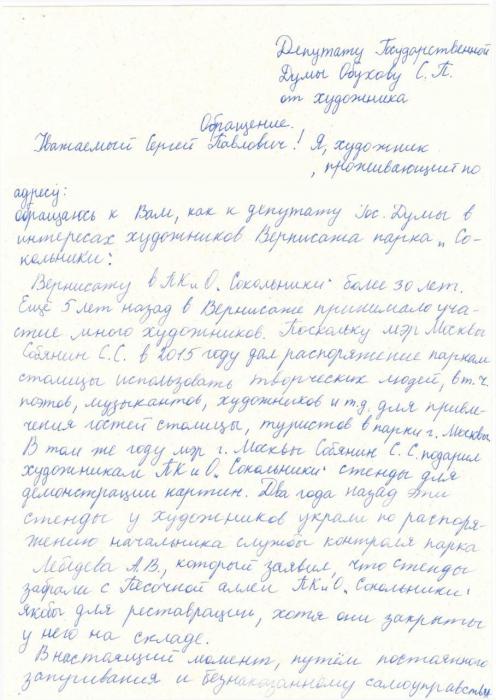 Депутату Государственной
Думы Обухову С.П.
от художника
Обращение.
Уважаемый Сергей Павлович! Я, художник
, проживающий по
адресу:
обращаюсь к Вам, как к депутату Гос. Думы в
интересах художников Вернисажа парка „Со-
кольники".
Вернисажу в ПКиО „Сокольники" более 30 лет.
Ещё 5 лет назад в Вернисаже принимало уча-
стие много художников. Поскольку мэр Москвы
Собянин С.С. в 2015 году дал распоряжение паркам
столицы использовать творческих людей, в т.ч.
поэтов, музыкантов, художников и т.д. для привле-
чения гостей столицы, туристов в парки г. Москвы.
В том же году мэр г. Москвы Собянин С.С. подарил
художникам ПКиО „Сокольники" стенды для
демонстрации картин. Два года назад эти
стенды у художников украли по распоря-
жению начальника службы контроля парка
Лебедева А.В., который заявил, что стенды
забрали с Песочной аллеи ПКиО „Сокольники"
якобы для реставрации, хотя они закрыты
у него на складе.
В настоящий момент, путём постоянного
запугивания и безнаказанному самоуправству